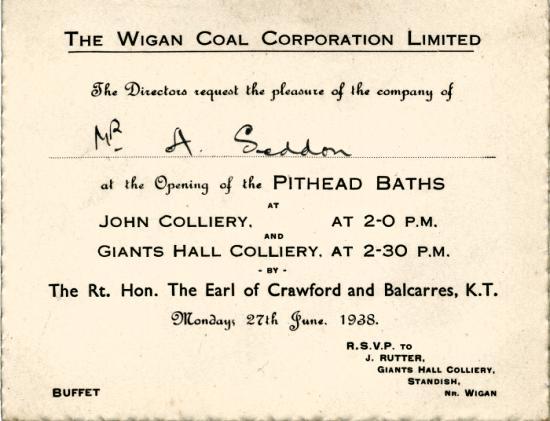 THE WIGAN COAL CORPORATION LIMITED
The Directors request the pleasure of the company of
Mr A. Seddon
at the Opening of the PITHEAD BATHS
AT
JOHN COLLIERY, AT 2-0 P.M.
AND
GIANTS HALL COLLIERY, AT 2-30 P.M.
- BY -
The Rt. Hon. The Earl of Crawford and Balcarres, K.T.
Monday, 27th June, 1938.
R.S.V.P. TO
J. RUTTER,
GIANTS HALL COLLIERY,
STANDISH,
NR. WIGAN
BUFFET